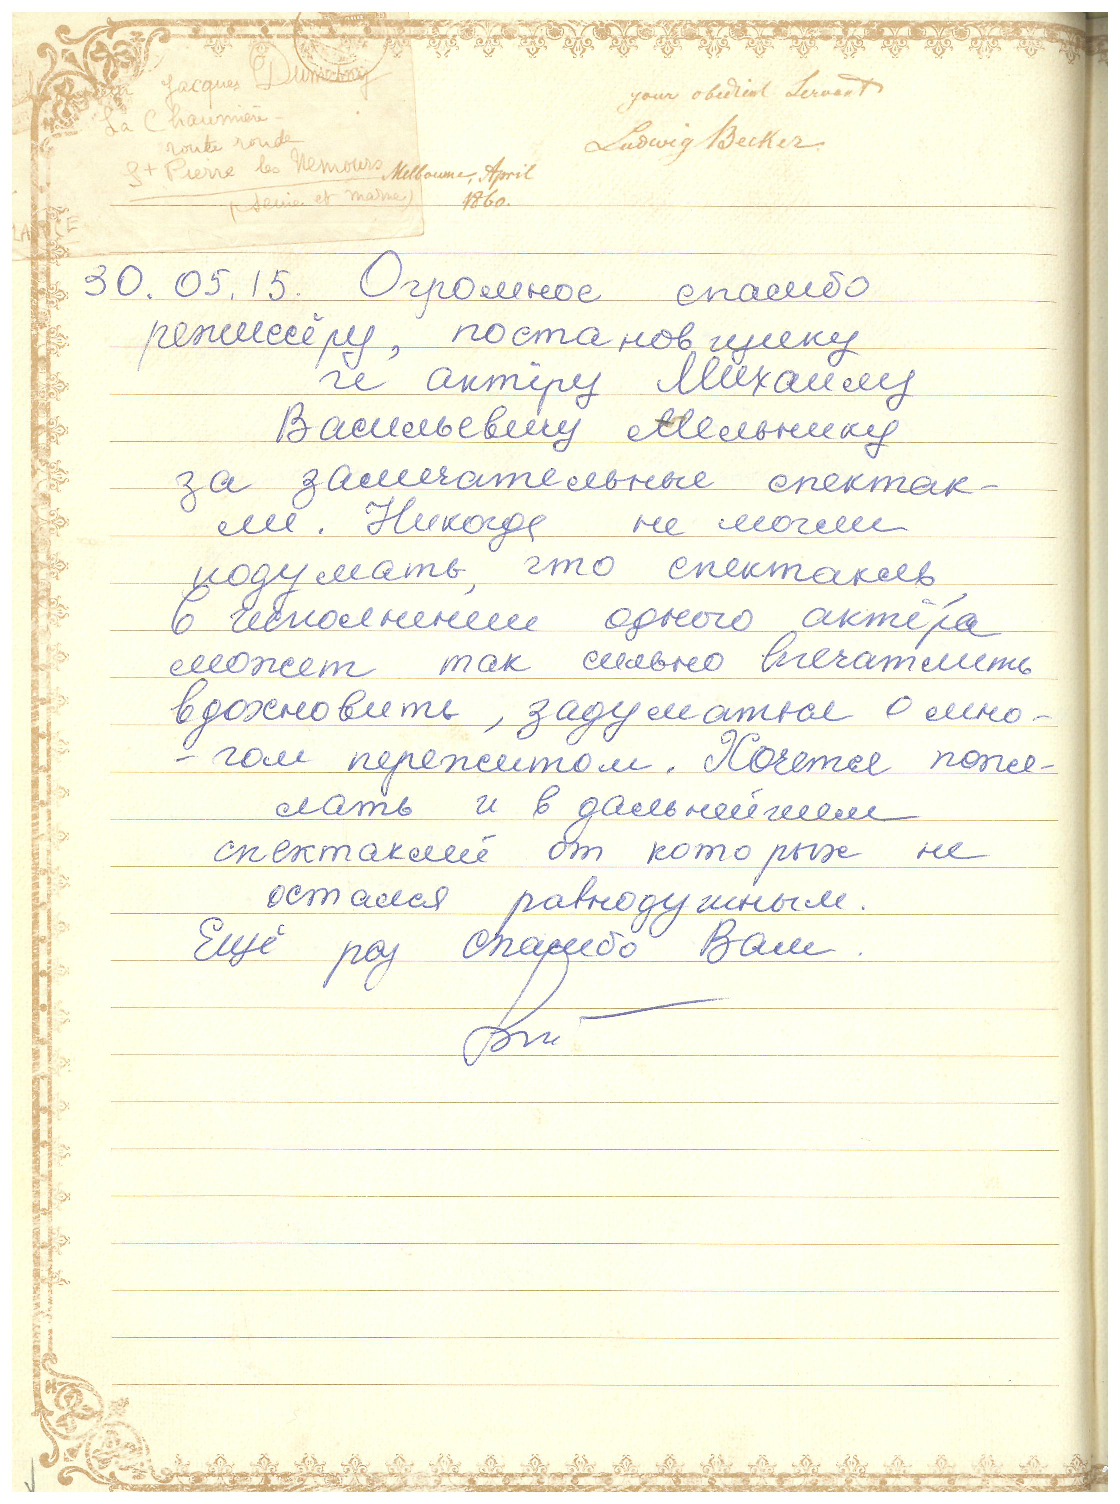 Jacques
La Chaumière -
route ronde
St Pierre les Nemours
(Seine et marne)
your obedient Servant
Ludwig Becker
Melbourne, April
1860.
30.05.15. Огромное спасибо
режиссёру, постановщику
и актёру Михаилу
Васильевичу Мельнику
за замечательные спектак-
ли. Никогда не могли
подумать, что спектакль,
в исполнении одного актёра
может так сильно впечатлить
вдохновить, задуматься о мно-
-гом пережитом. Хочется поже-
лать и в дальнейшем
спектаклей от которых не
остался равнодушным.
Ещё раз спасибо Вам.